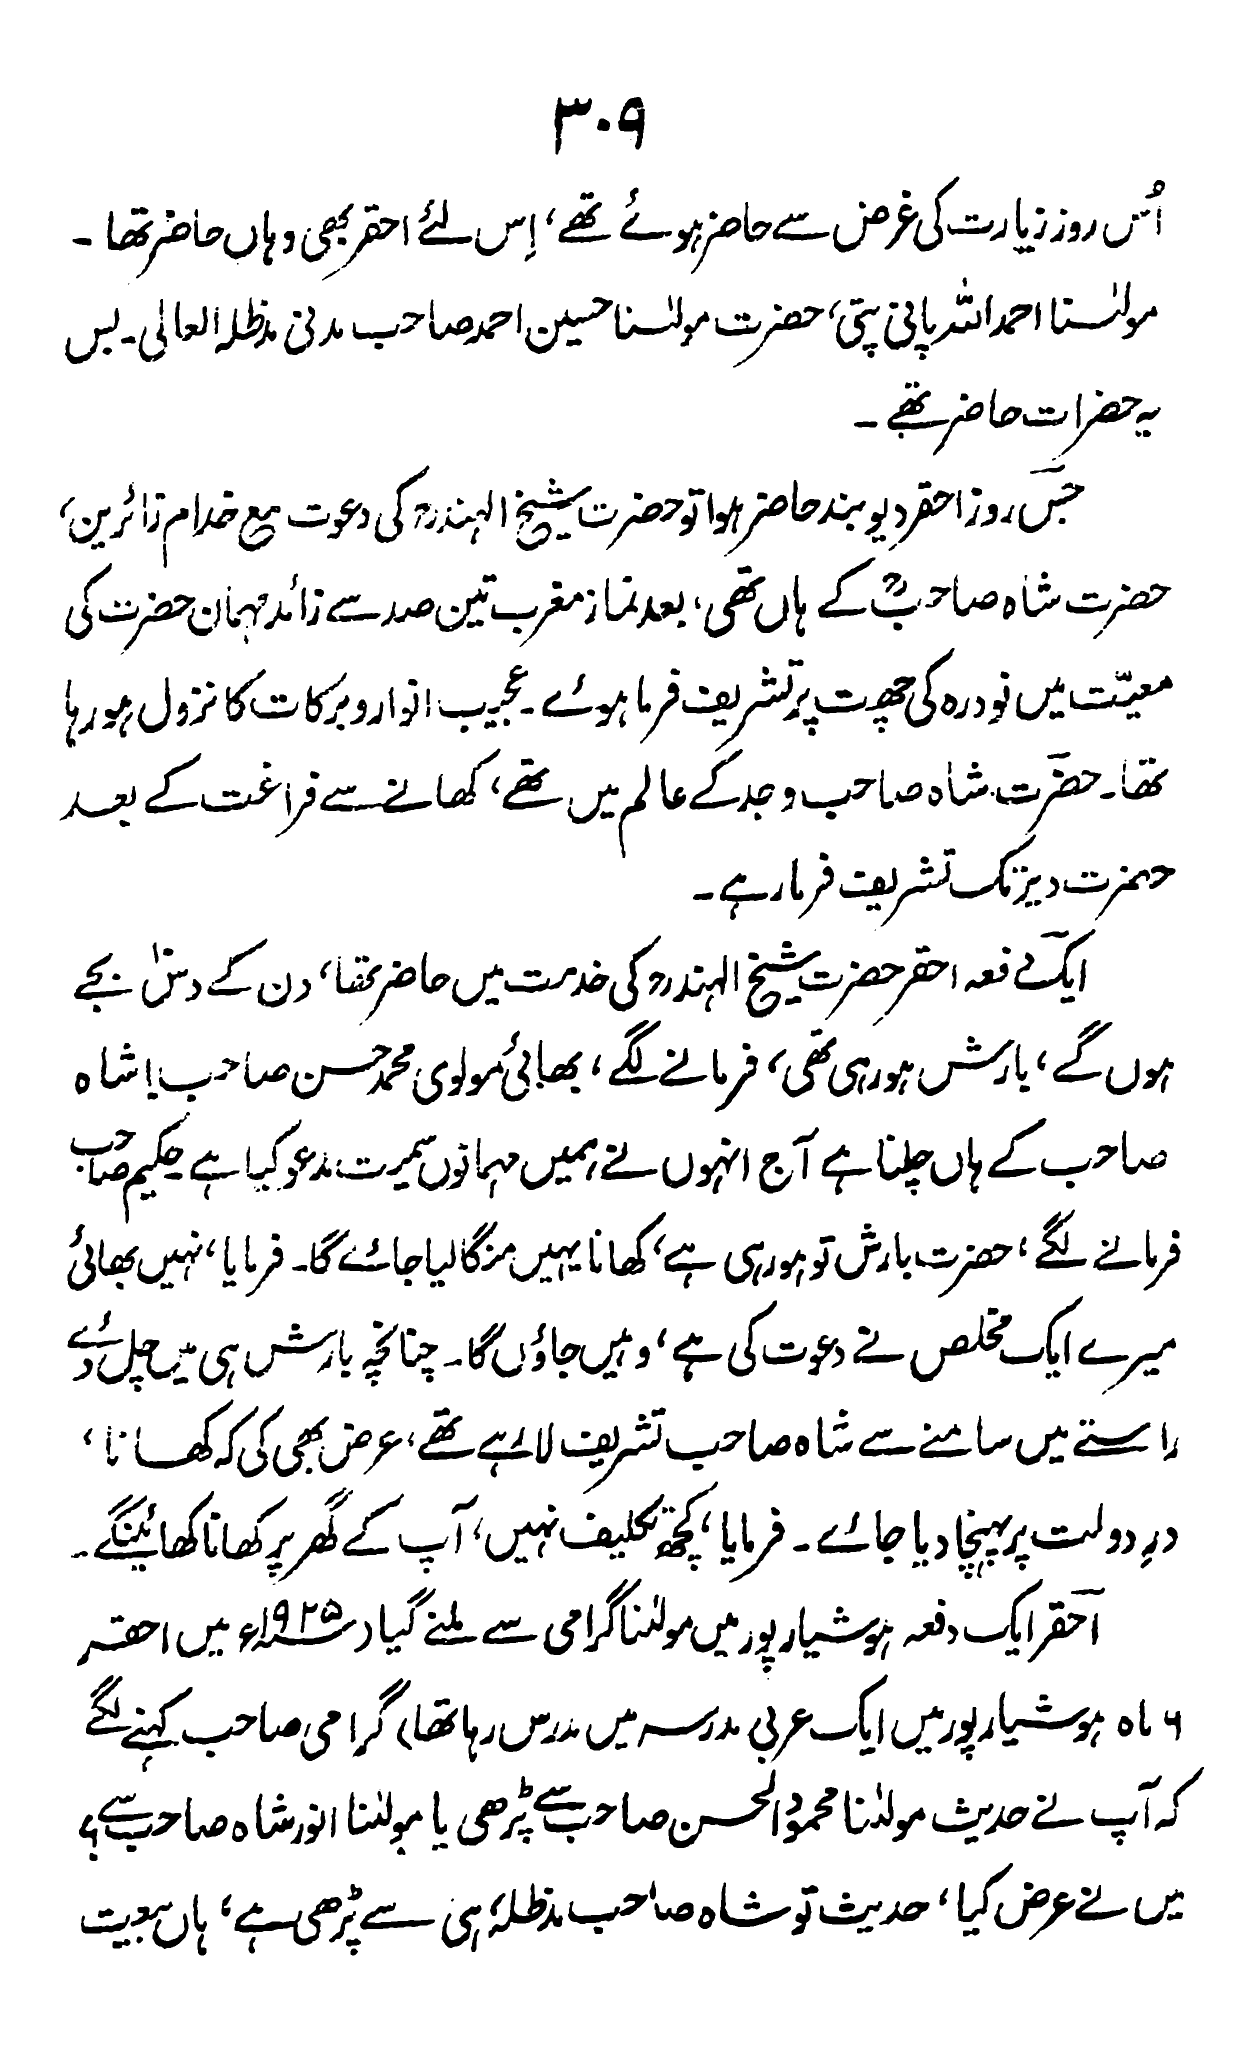 ۳۰۹
اُس روز زیارت کی غرض سے حاضر ہوئے تھے، اِس لئے احقر بھی وہاں حاضر تھا۔
مولٰسنا احمد اللہ پانی پتی، حضرت مولٰسنا حسین احمد صاحب مدنی مدظلہ العالی۔ بس
یہ حضرات حاضر تھے۔
جس روز احقر دیوبند حاضر ہوا تو حضرت شیخ الہندؒ کی دعوت مع خدام زائرین،
حضرت شاہ صاحبؒ کے ہاں تھی، بعد نماز مغرب تین صد سے زائد مہمان حضرت کی
معیّت میں نودرہ کی چھت پر تشریف فرما ہوئے۔ عجیب انوار و برکات کا نزول ہو رہا
تھا۔ حضرت شاہ صاحب وجد کے عالم میں تھے، کھانے سے فراغت کے بعد
حضرت دیر تک تشریف فرما رہے۔
ایک دفعہ احقر حضرت شیخ الہندؒ کی خدمت میں حاضر تھا، دن کے دس بجے
ہوں گے، بارش ہو رہی تھی، فرمانے لگے، بھائی مولوی محمد حسن صاحب! شاہ
صاحب کے ہاں چلنا ہے آج انہوں نے ہمیں مہمانوں سمیت مدعو کیا ہے۔ حکیم صاحب
فرمانے لگے، حضرت بارش تو ہو رہی ہے، کھانا یہیں منگا لیا جائے گا۔ فرمایا، نہیں بھائی
میرے ایک مخلص نے دعوت کی ہے، وہیں جاؤں گا۔ چنانچہ بارش ہی میں چل دئے
راستے میں سامنے سے شاہ صاحب تشریف لا رہے تھے، عرض بھی کی کہ کھانا،
درِ دولت پر پہنچا دیا جائے۔ فرمایا، کچھ تکلیف نہیں، آپ کے گھر پر کھانا کھائینگے۔
احقر ایک دفعہ ہوشیارپور میں مولٰنا گرامی سے ملنے گیا (سنہ ۱۹۲۵ء میں احقر
۶ ماہ ہوشیارپور میں ایک عربی مدرسہ میں مدرس رہا تھا) گرامی صاحب کہنے لگے
کہ آپ نے حدیث مولٰنا محمود الحسن صاحب سے پڑھی یا مولٰنا انور شاہ صاحب سے؟
میں نے عرض کیا، حدیث تو شاہ صاحب مدظلہ، ہی سے پڑھی ہے، ہاں بیعت